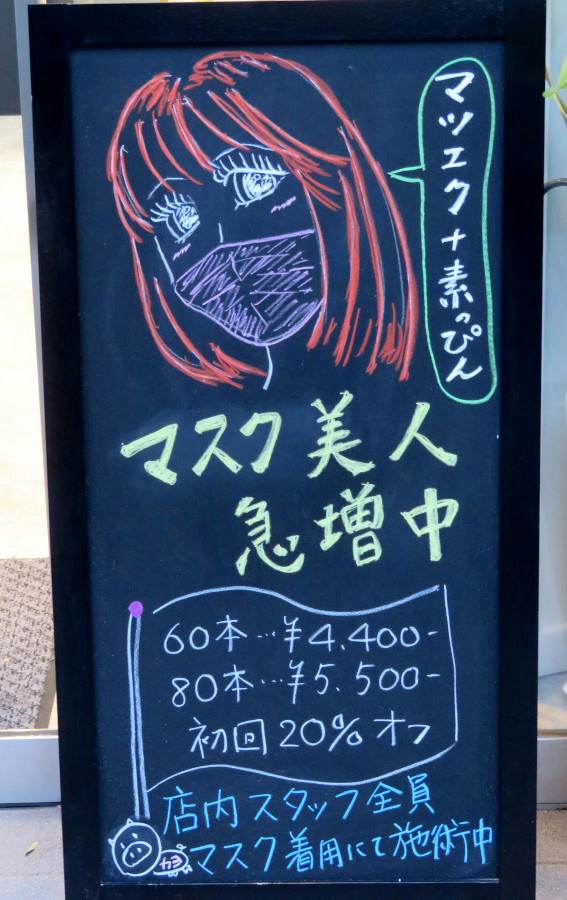 マツエク+素っぴん
マスク美人
急増中
60本…¥4.400-
80本…¥5.500-
初回20%オフ
店内スタッフ全員
マスク着用にて施術中
カヨ